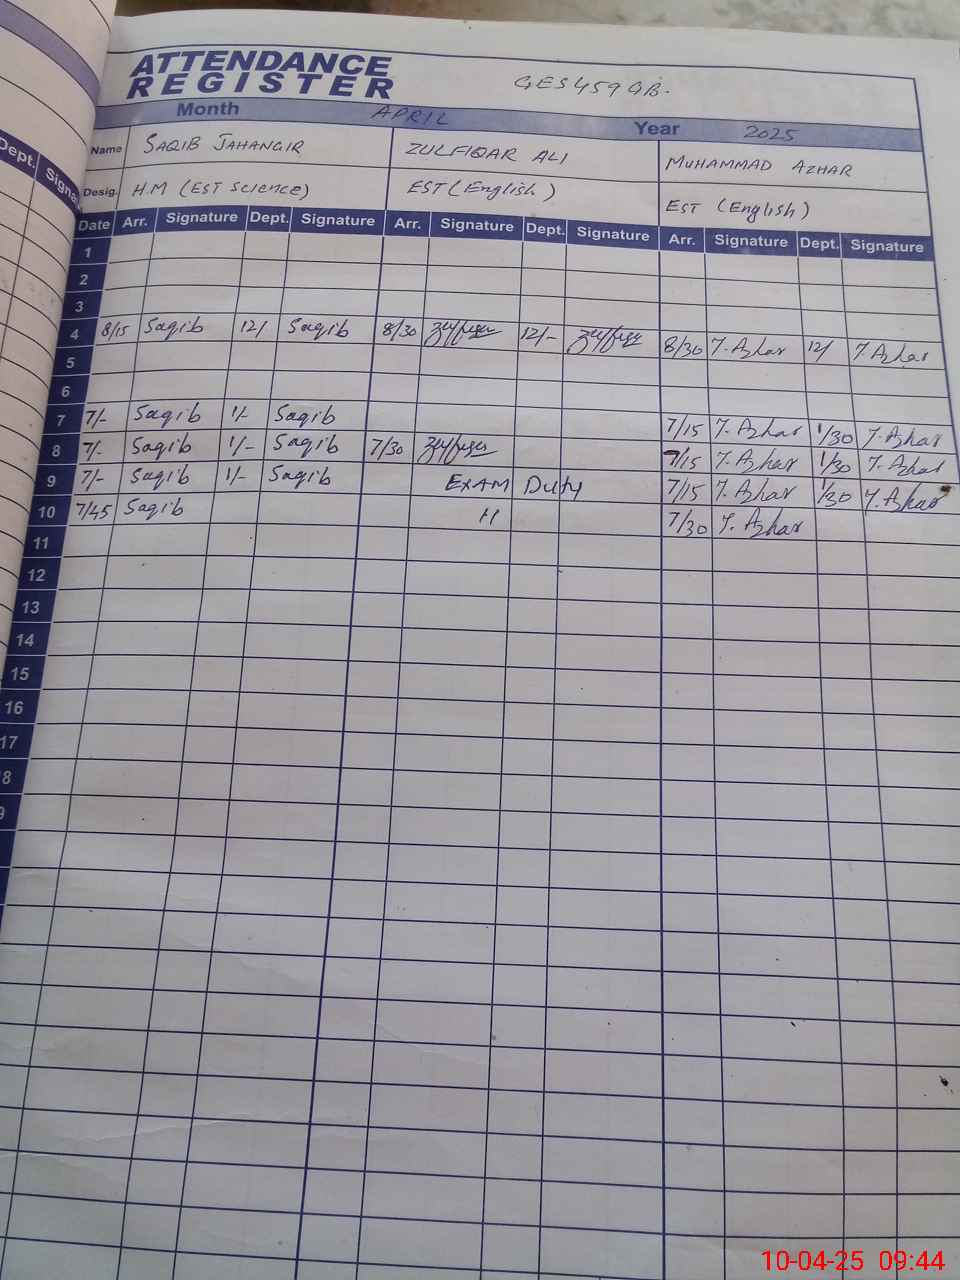 ATTENDANCE
REGISTER
GES 459 GB.
Month APRIL Year 2025
Dept. Signa
Name SAQIB JAHANGIR ZULFIQAR ALI MUHAMMAD AZHAR
Desig. H.M (EST SCIENCE) EST (English) EST (English)
Date Arr. Signature Dept. Signature Arr. Signature Dept. Signature Arr. Signature Dept. Signature
1
2
3
4 8/15 Saqib 12/ Saqib 8/30 12/- 8/30 T. Azhar 12/ T. Azhar
5
6
7 7/- Saqib 1/- Saqib 7/15 T. Azhar 1/30 T. Azhar
8 7/- Saqib 1/- Saqib 7/30 7/15 T. Azhar 1/30 T. Azhar
9 7/- Saqib 1/- Saqib EXAM Duty 7/15 T. Azhar 1/30 T. Azhar
10 7/45 Saqib 11 7/30 T. Azhar
11
12
13
14
15
16
17
8
9
10-04-25 09:44